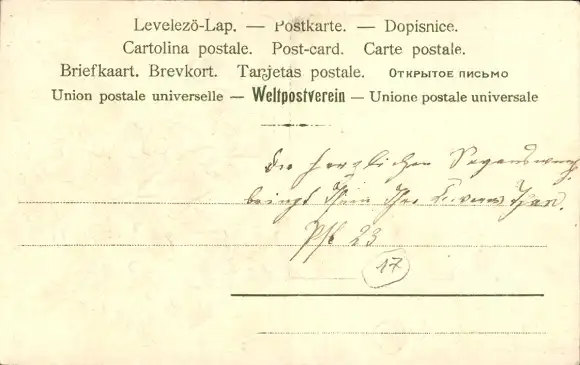 Levelezö-Lap. — Postkarte. — Dopisnice.
Cartolina postale. Post-card. Carte postale.
Briefkaart. Brevkort. Tarjetas postale. ОТКРЫТОЕ ПИСЬМО
Union postale universelle — Weltpostverein — Unione postale universale
herzlichen
bringt Ihnen Ihr
23
17